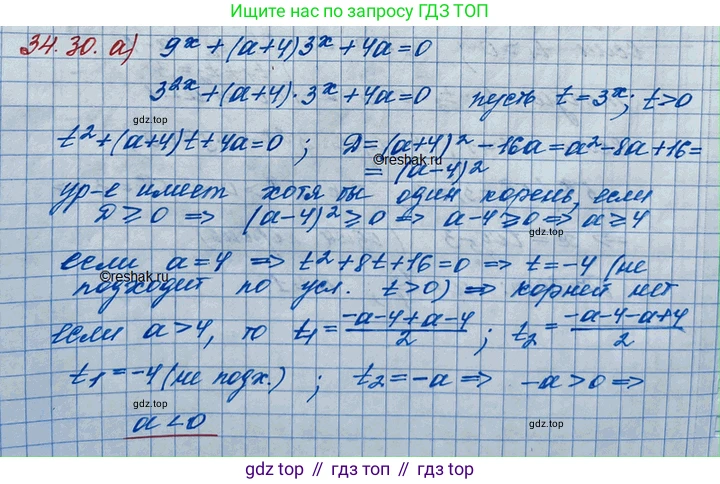 Ищите ответы по запросу ГДЗ ТОП
34.30. а) 9^x + (a+4)3^x + 4a = 0
3^{2x} + (a+4)·3^x + 4a = 0 пусть t = 3^x; t > 0
гдз.top
t² + (a+4)t + 4a = 0 ; Д = (a+4)² - 16a = a² - 8a + 16 =
©reshak.ru
= (a-4)²
ур-е имеет хотя бы один корень, если
Д ≥ 0 => (a-4)² ≥ 0 => a-4 ≥ 0 => a ≥ 4
гдз.top
если a = 4 => t² + 8t + 16 = 0 => t = -4 (не
©reshak.ru
подходит по усл. t > 0) => корней нет
гдз.top
если a > 4, то t₁ = \frac{-a-4+a-4}{2} ; t₂ = \frac{-a-4-a+4}{2}
t₁ = -4 (не подх.) ; t₂ = -a => -a > 0 =>
гдз.top
гдз.top
a < 0
gdz top // гдз топ // gdz top